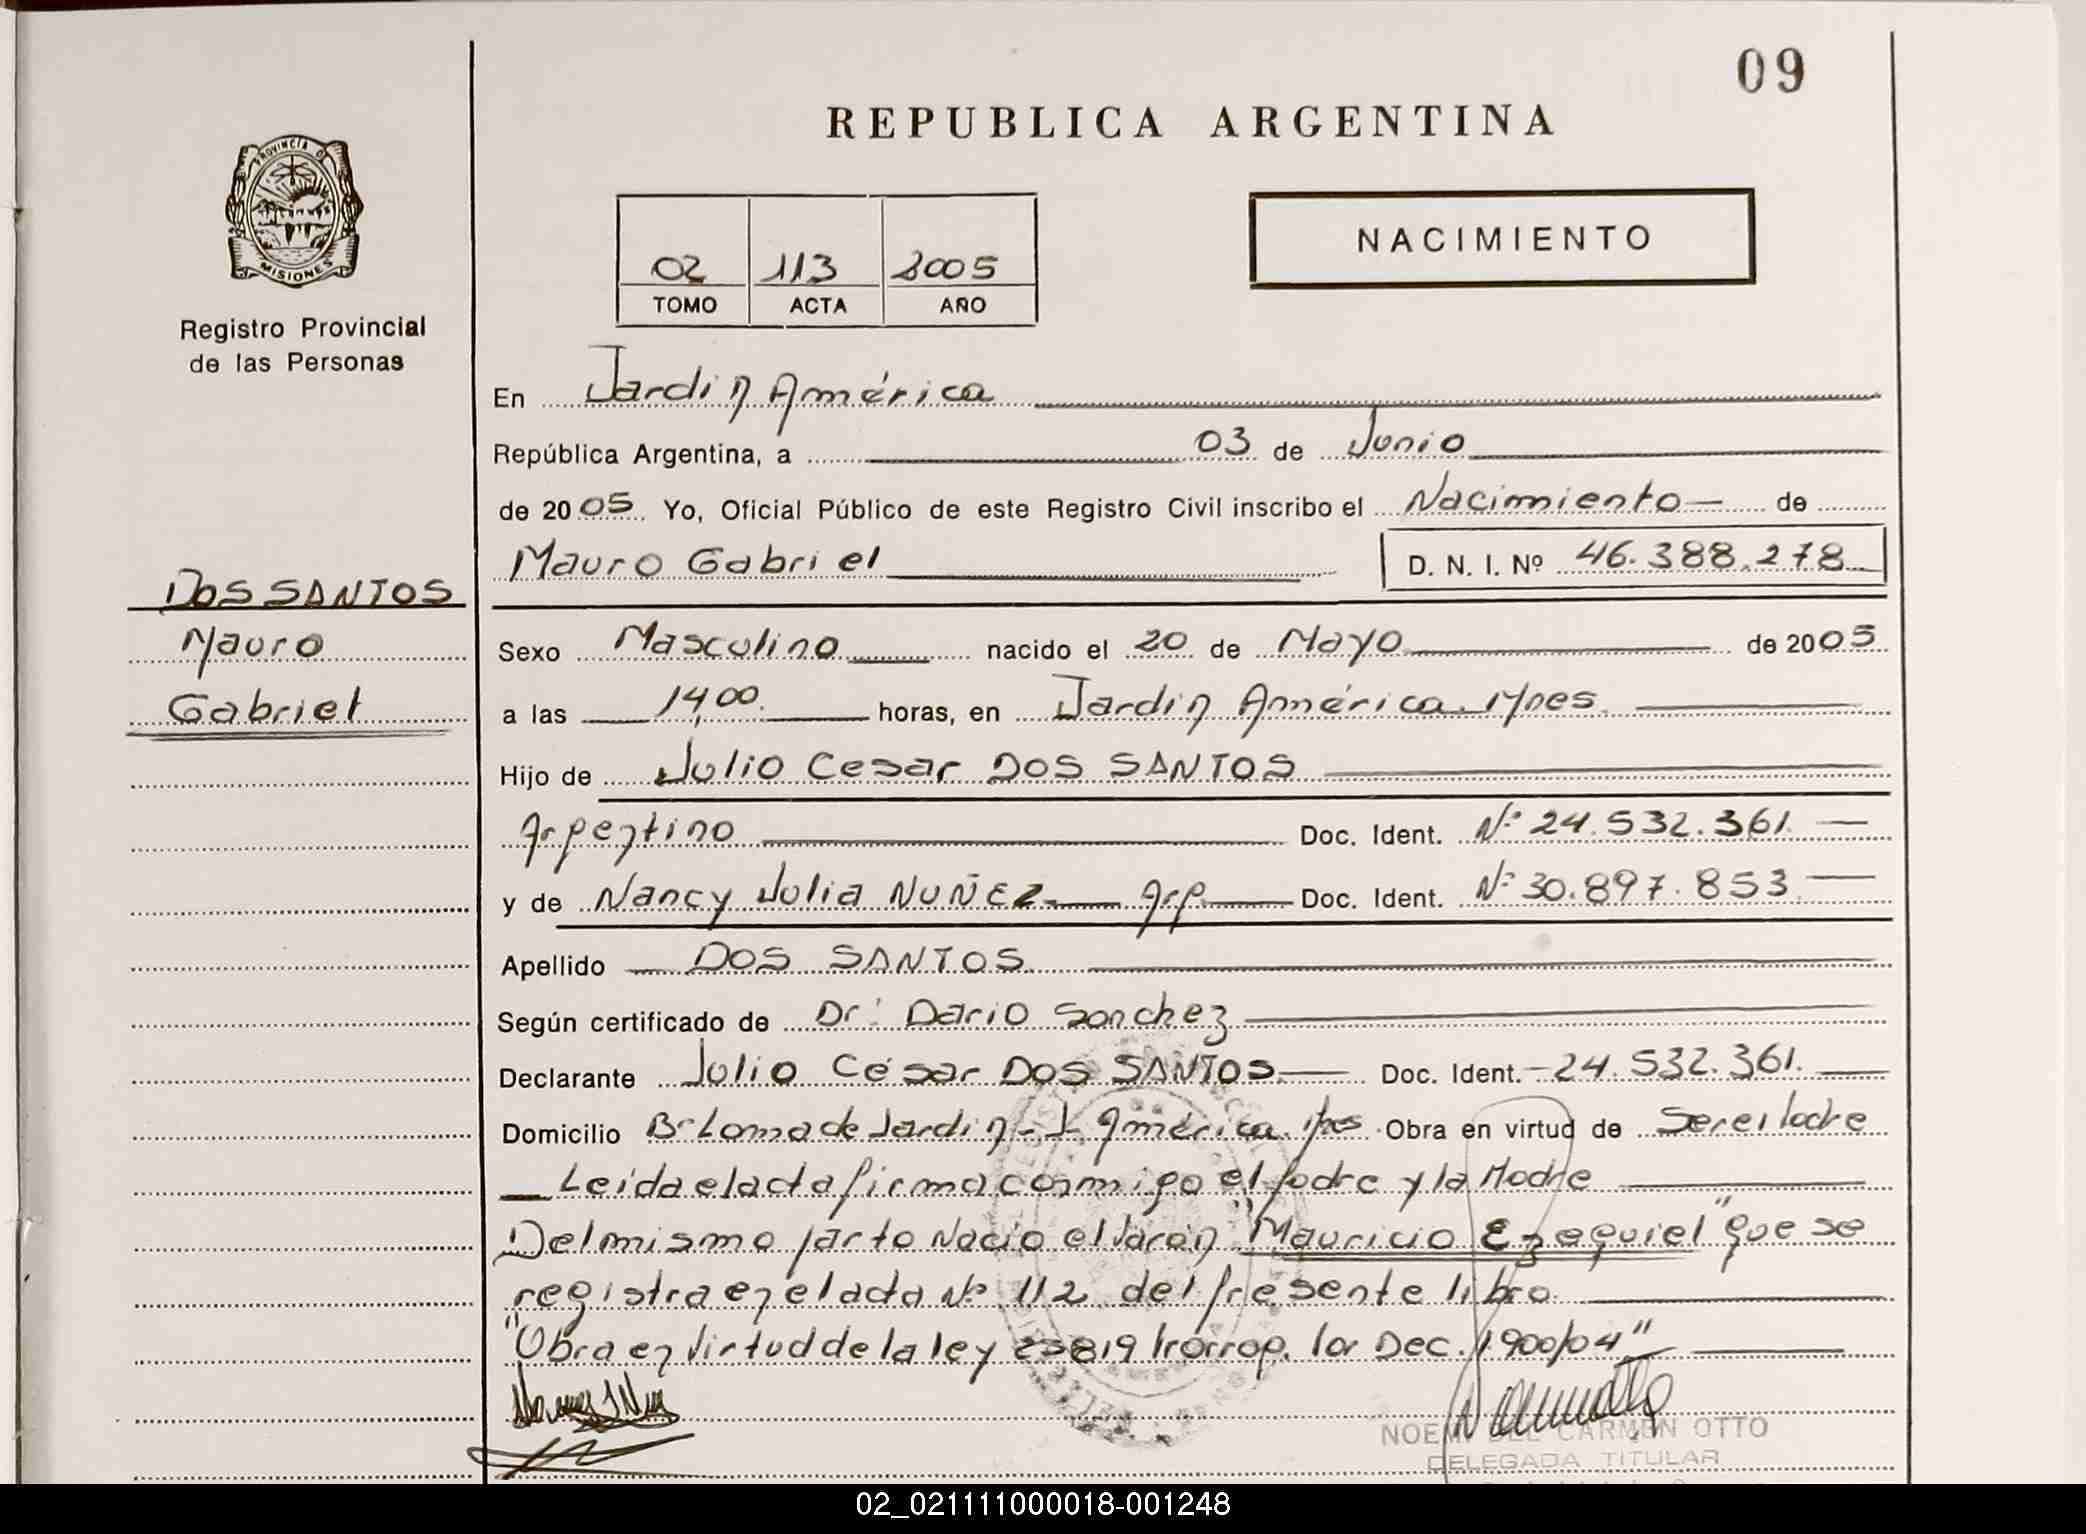 09
REPUBLICA ARGENTINA
PROVINCIA DE
MISIONES
Registro Provincial
de las Personas
02 113 2005
TOMO ACTA AÑO
NACIMIENTO
En Jardin América
República Argentina, a 03 de Junio
de 2005. Yo, Oficial Público de este Registro Civil inscribo el Nacimiento de
Mauro Gabriel D. N. I. Nº 46.388.278
DOS SANTOS
Mauro
Gabriel
Sexo Masculino nacido el 20 de Mayo de 2005
a las 14,00. horas, en Jardin América. Mnes.
Hijo de Julio Cesar DOS SANTOS
Argentino Doc. Ident. Nº 24.532.361
y de Nancy Julia NUÑEZ Arg. Doc. Ident. Nº 30.897.853
Apellido DOS SANTOS
Según certificado de Dr. Dario Sanchez
Declarante Julio César DOS SANTOS Doc. Ident. 24.532.361.
Domicilio Bº Loma de Jardin - J. América. Mnes Obra en virtud de Ser el Padre
Leida el acta firma conmigo el Padre y la Madre
Del mismo parto Nacio el Varon "Mauricio Ezequiel" que se
registra en el acta Nº 112 del Presente libro.
"Obra en Virtud de la ley 23819 Prorrog. Por Dec. 1900/04"
NOEMI DEL CARMEN OTTO
DELEGADA TITULAR
02_021111000018-001248